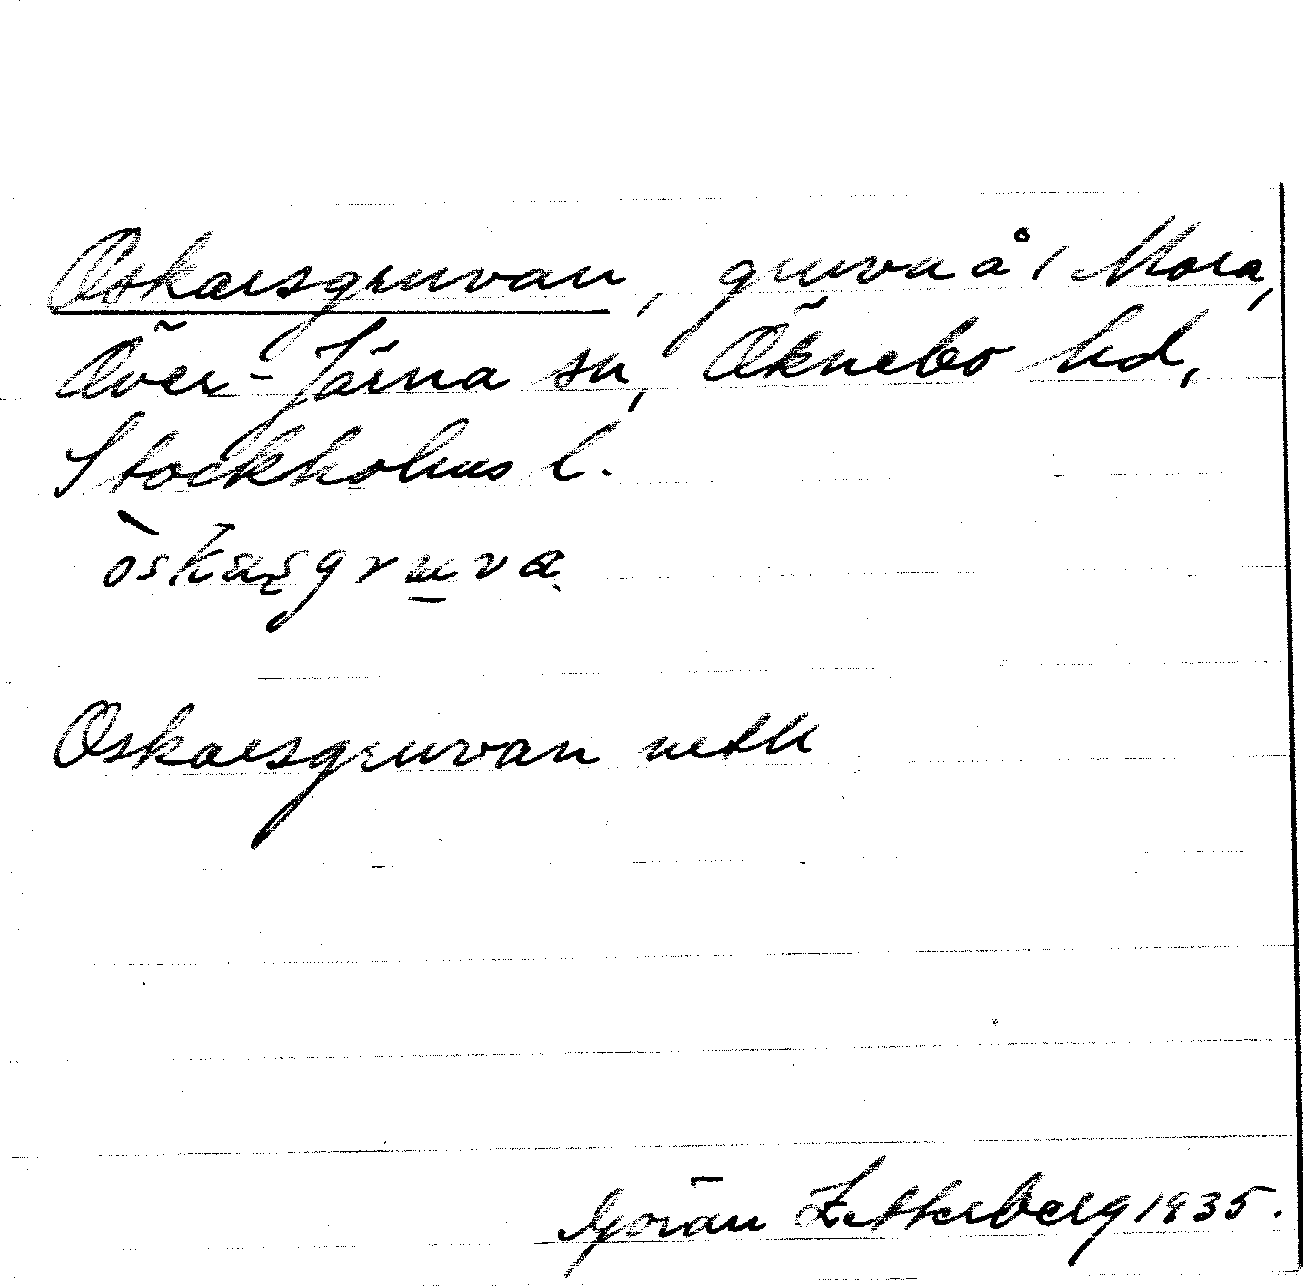 Oskarsgruvan, gruva å 1 Mora,
Över-Järna sn, Öknebo hd,
Stockholms l.
òskaşgruva
Oskarsgruvan
Göran Zetterberg 1935.